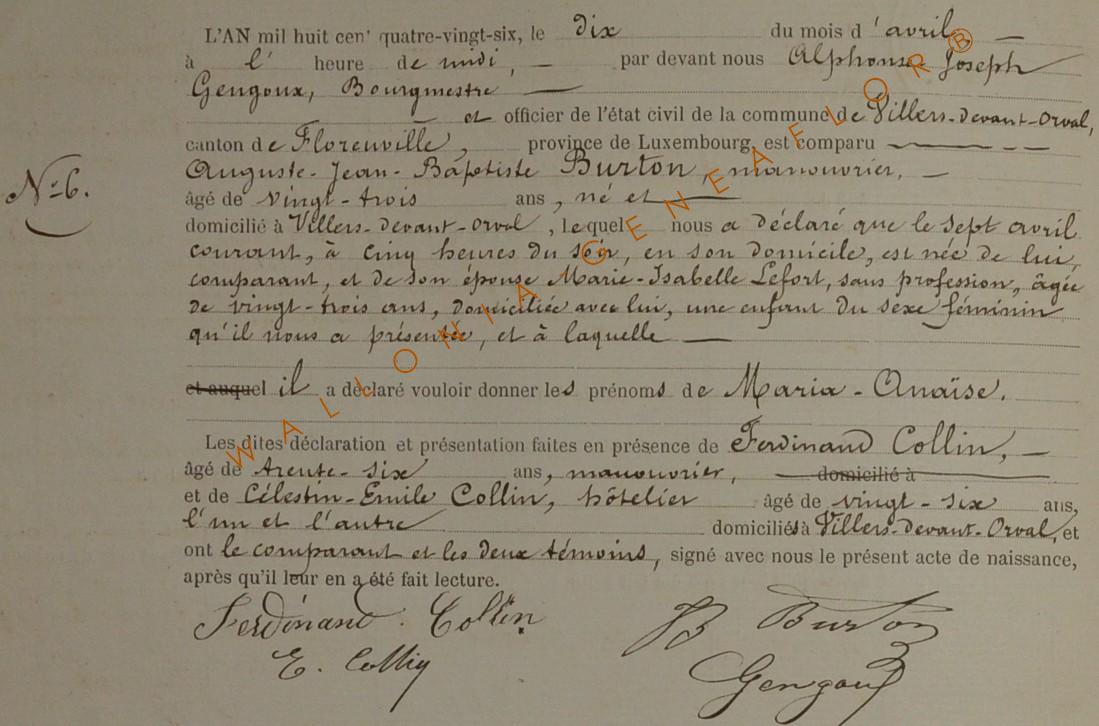 L'AN mil huit cen' quatre-vingt-six, le dix du mois d'avril
à l' heure de midi, par devant nous Alphonse Joseph
Gengoux, Bourgmestre
et officier de l'état civil de la commune de Villers-devant-Orval,
canton de Florenville, province de Luxembourg, est comparu
Auguste-Jean-Baptiste Burton, manouvrier,
N° 6.
âgé de vingt-trois ans, né et
domicilié à Villers-devant-Orval, lequel nous a déclaré que le sept avril
courant, à cinq heures du soir, en son domicile, est née de lui,
comparant, et de son épouse Marie-Isabelle Lefort, sans profession, âgée
de vingt-trois ans, domiciliée avec lui, une enfant du sexe féminin
qu'il nous a présentée, et à laquelle
et auquel il a déclaré vouloir donner les prénoms de Maria-Anaïse.
Les dites déclaration et présentation faites en présence de Ferdinand Collin,
âgé de trente-six ans, manouvrier, domicilié à
et de Célestin-Emile Collin, hôtelier âgé de vingt-six ans,
l'un et l'autre domiciliés à Villers-devant-Orval, et
ont le comparant et les deux témoins, signé avec nous le présent acte de naissance,
après qu'il leur en a été fait lecture.
Ferdinand Collin JB Burton
E. Collin Gengoux
WALLONIA GENEAFLOR®